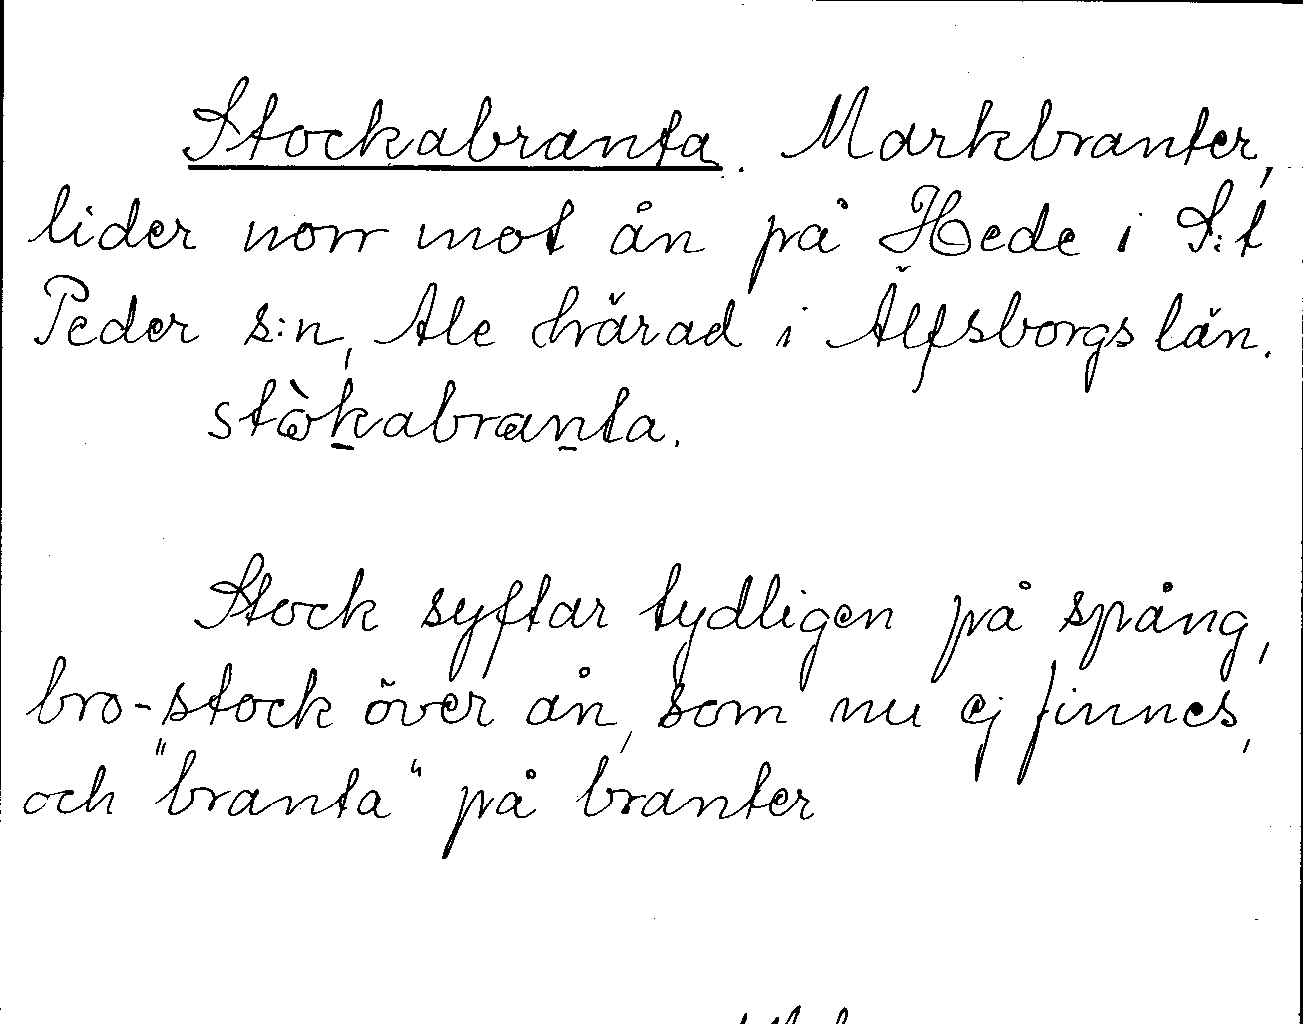 Stockabranta. Markbranter,
lider norr mot ån på Hede i S:t
Peder s:n, Ale härad i Älfsborgs län.
stòkabranta.
Stock syftar tydligen på spång,
bro-stock över ån, som nu ej finnes,
och "branta" på branter